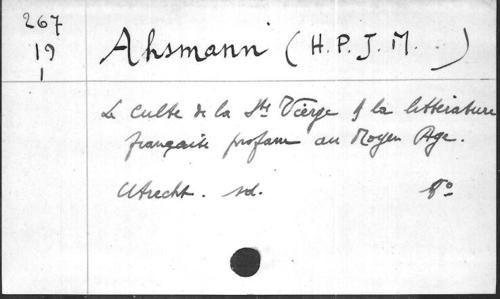 267
19
1
Ahsmann (H. P. J. M. )
Le culte de la Ste Vierge & la littérature
française profane au Moyen Age.
Utrecht. sd. 8°